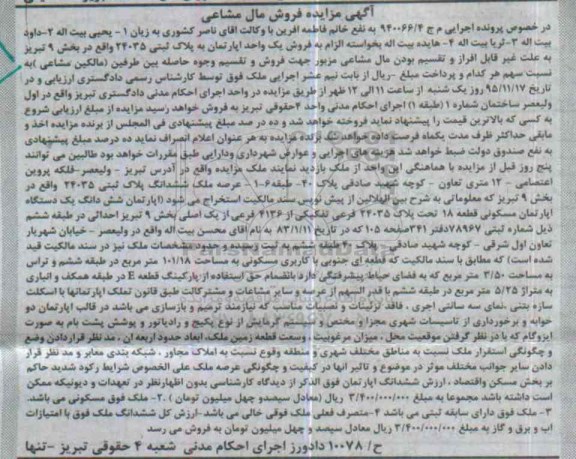 آگهی مزایده فروش مال مشاعی
در خصوص پرونده اجرایی م ج ۹۴۰۰۶۶/۴ به نفع خانم فاطمه آفرین با وکالت آقای ناصر کشوری به زیان ۱- یحیی بیت اله ۲-داود
بیت اله ۳-ثریا بیت اله ۴- هایده بیت اله بخواسته الزام به فروش یک واحد آپارتمان به پلاک ثبتی ۲۴۰۳۵ واقع در بخش ۹ تبریز
به علت غیر قابل افراز و تقسیم بودن مال مشاعی مزبور جهت فروش و تقسیم وجوه حاصله بین طرفین (مالکین مشاعی )به
نسبت سهم هر کدام و پرداخت مبلغ -ریال از بابت نیم عشر اجرایی ملک فوق توسط کارشناس رسمی دادگستری ارزیابی و در
تاریخ ۹۵/۱۱/۱۷ روز یک شنبه از ساعت ۱۱ الی ۱۲ ظهر از طریق مزایده در واحد اجرای احکام مدنی دادگستری تبریز واقع در اول
ولیعصر ساختمان شماره ۱ (طبقه ۱) اجرای احکام مدنی واحد ۴حقوقی تبریز به فروش خواهد رسید مزایده از مبلغ ارزیابی شروع
به کسی که بالاترین قیمت را پیشنهاد نماید فروخته خواهد شد و ده در صد مبلغ پیشنهادی فی المجلس از برنده مزایده اخذ و
مابقی حداکثر ظرف مدت یکماه فرصت داده خواهد شد برنده مزایده به هر عنوان اعلام انصراف نماید ده درصد مبلغ پیشنهادی
به نفع صندوق دولت ضبط خواهد شد هزینه های اجرایی و عوارض شهرداری ودارایی طبق مقررات خواهد بود طالبین می توانند
پنج روز قبل از مزایده با هماهنگی این واحد از ملک بازدید نمایند ملک مزایده واقع در آدرس تبریز - ولیعصر-فلکه پروین
اعتصامی - ۱۲ متری تعاون - کوچه شهید صادقی پلاک ۴۰- طبقه۶-۱- عرصه ملک ششدانگ پلاک ثبتی ۲۴۰۳۵ واقع در
بخش ۹ تبریز که معلوماتی به شرح بین الهلالین از پیش نویس سند مالکیت استخراج می شود (آپارتمان شش دانگ یک دستگاه
آپارتمان مسکونی قطعه ۱۸ تحت پلاک ۲۴۰۳۵ فرعی تفکیکی از ۴۱۳۶ فرعی از یک اصلی بخش ۹ تبریز احداثی در طبقه ششم
ذیل شماره ثبتی ۷۸۹۶۷دفتر ۳۴۱صفحه ۱۰۵ که در تاریخ ۸۳/۱/۱۱ به نام آقای محسن بیت اله واقع در ولیعصر - خیابان شهریار
تعاون اول شرقی - کوچه شهید صادقی - پلاک ۴۰ طبقه ششم به ثبت رسیده و حدود و مشخصات ملک نیز در سند مالکیت قید
شده است) که مطابق با سند مالکیت که قطعه ای جنوبی با کاربری مسکونی به مساحت ۱۰۱/۱۸ متر مربع در طبقه ششم و تراس
به مساحت ۳/۵۰ متر مربع که به فضای حیاط پیشرفتگی دارد بانضمام حق استفاده از پارکینگ قطعه E در طبقه همکف و انباری
به متراژ ۵/۲۵ متر مربع در طبقه ششم با قدر السهم از عرصه و سایر مشاعات و مشترکات طبق قانون تملک آپارتمانها با اسکلت
سازه بتنی ،نمای سه سانتی آجری ، فاقد تزئینات و نصبیات مناسب که نیازمند ترمیم و بازسازی می باشد در قالب آپارتمان دو
خوابه و برخورداری از تاسیسات شهری مجزا و مختص و سیستم گرمایش از نوع پکیج و رادیاتور و پوشش پشت بام به صورت
ایزوگام که با در نظر گرفتن موقعیت محل ، میزان مرغوبیت ، وسعت قطعه زمین ملک، ابعاد حدود اربعه آن ، مد نظر قراردادن وضع
و چگونگی استقرار ملک نسبت به مناطق مختلف شهری و منطقه وقوع نسبت به املاک مجاور ، شبکه بندی معابر و مد نظر قرار
دادن سایر جوانب مختلف موثر در موضوع و تاثیر آنها در کیفیت و چگونگی عرصه ملک علی الخصوص شرایط رکود شدید حاکم
بر بخش مسکن واقتصاد ، ارزش ششدانگ آپارتمان فوق الذکر از دیدگاه کارشناسی بدون اظهارنظر در تعهدات و دیونیکه ممکن
است داشته باشد مجموعا به مبلغ ۳/۴۰۰/۰۰۰/۰۰۰ ریال (معادل سیصدو چهل میلیون تومان ) .۲- ملک فوق مسکونی می باشد.
۳- ملک فوق دارای سابقه ثبتی می باشد ۴-متصرف فعلی ملک فوقی خالی می باشد-ارزش کل ششدانگ ملک فوق با امتیازات
آب و برق و گاز به مبلغ ۳/۴۰۰/۰۰۰/۰۰۰ ریال معادل سیصد و چهل میلیون تومان به فروش می رسد
ح/ ۱۰۰۷۸ دادورز اجرای احکام مدنی شعبه ۴ حقوقی تبریز -تنها